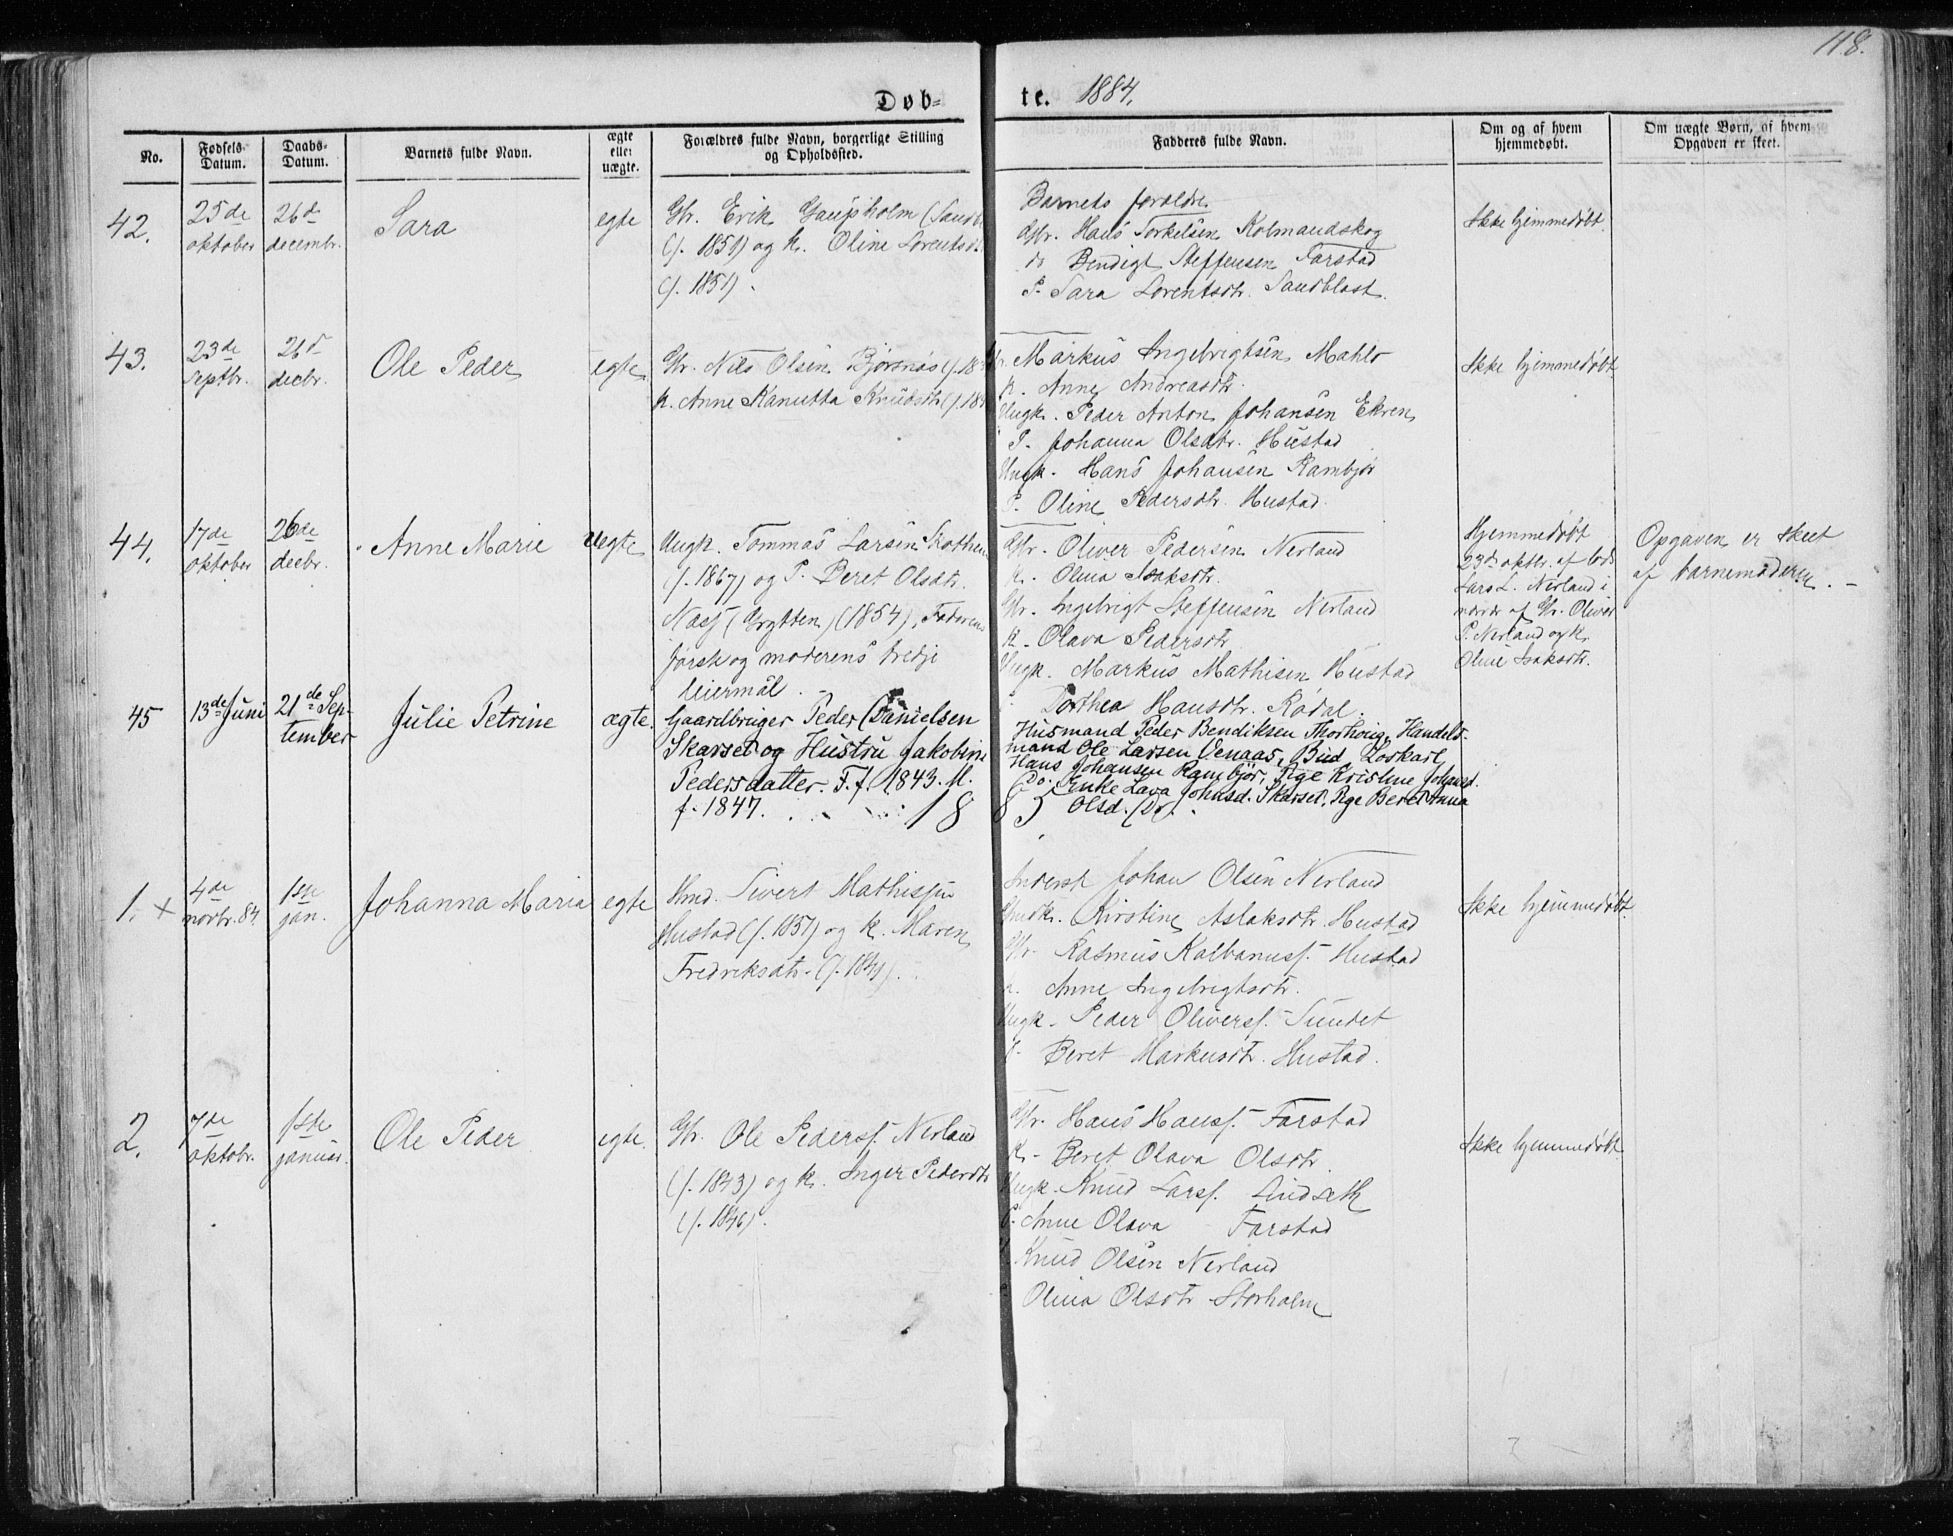 118.
Døbte. 1884.
No.
Fødsels-Datum.
Daabs-Datum.
Barnets fulde Navn.
ægte eller uægte.
Forældres fulde Navn, borgerlige Stilling og Opholdssted.
Fadderes fulde Navn.
Om og af hvem hjemmedøbt.
Om uægte Børn, af hvem Opgaven er skeet.
42.
25de oktober
26d decembr.
Sara
egte
Gbr. Erik Gaupsholm (Sandbl
(f. 1851) og k. Oline Lorentsdt.
(f. 1851).
Barnets foreldre
Gbr. Hans Torkelsen Kolmandskog
do Bendigt Steffensen Farstad
P. Sara Lorentsdtr. Sandblast.
Ikke hjemmedøbt.
43.
23de Septbr.
26d decbr.
Ole Peder
egte
Gbr. Nils Olsen Bjørnøs (f. 18
k. Anne Kanutta Knudsdtr (f. 18
Markus Ingebrigtsen Mahlo
k. Anne Andreasdtr.
Ungk. Peder Anton Johansen Ekren
P. Johanna Olsdtr. Hustad
Ungk. Hans Johansen Rambjør
P. Oline Pedersdtr. Hustad.
Ikke hjemmedøbt
44.
17de oktober
26de decbr.
Anne Marie
Uegte
Ungk. Tommas Larsen Skothei
(f. 1867) og P. Beret Olsdtr.
Næsj (Grytten) (1854), Faderens
første og moderens tredje
leiermål.
Gbr. Oliver Pedersen Nerland
K. Olina Isaksdtr.
Gbr. Ingebrigt Steffensen Nerland
K. Olava Pedersdtr
Ungk. Markus Mathisen Hustad
Dorthea Hansdtr. Rødal.
Hjemmedøbt
23de oktbr. af
Lars L. Nerland i
nærv. af Gbr. Oliver
P. Nerland og k.
Oline Isaksdtr.
Opgaven er skeet
af barnemoderen.
45
13de Juni
21de September
Julie Petrine
ægte.
Gaardbruger Peder Danielsen
Skarset og Hustru Jakobine
Pedersdatter. F. f. 1843. M.
f. 1847.
Husmand Peder Bendiksen Thorhoug, Handels-
mand Ole Larsen Venaas, Bud Loskarl
Hans Johansen Rambjør, Pge Kristine Johansd.
(Do. Enke Lava Johnsd. Skarset, Pge Beret Anna
Olsd. (Do).
1885
1. +
4de novbr. 84
1ste jan.
Johanna Maria
egte
Hmd. Sivert Mathissen
Hustad (f. 1851) og k. Maren
Fredriksdtr. (f. 1841).
Inderst Johan Olsen Nerland
Hmdk. Kirstine Aslaksdtr. Hustad
Gbr. Rasmus Kolbanusf. Hustad
k. Anne Ingebrigtsdtr.
Ungk. Peder Oliversf. Sundet
P. Beret Markusdtr. Hustad.
Ikke hjemmedøbt.
2.
7de oktobr.
1ste januar.
Ole Peder
egte
Gbr. Ole Pedersf. Nerland
(f. 1843) og k. Inger Pedersdtr
(f. 1846).
Gbr. Hans Hansf. Farstad
K. Beret Olava Olsdtr.
Ungk. Knud Larsf. Lindseth
P. Anne Olava Farstad
Knud Olsen Nerland
Olina Olsdtr Storholm
Ikke hjemmedøbt